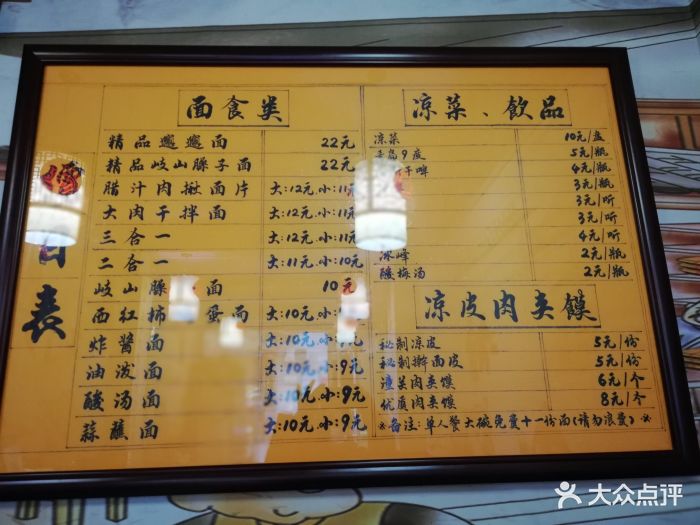 目表
面食类
精品邋邋面 22元
精品岐山臊子面 22元
腊汁肉揪面片 大:12元,小:11元
大肉干拌面 大:12元,小:11元
三合一 大:12元,小:11元
二合一 大:11元,小:10元
岐山臊 面 10元
西红柿 蛋面 大:10元,小:
炸醬面 大:10元,小:9元
油泼面 大:10元,小:9元
酸汤面 大:10元,小:9元
蒜蘸面 大:10元,小:9元
凉菜、飲品
凉菜 10元/盘
青岛9度 5元/瓶
干啤 4元/瓶
3元/瓶
3元/听
3元/听
4元/听
冰峰 2元/瓶
酸梅汤 2元/瓶
凉皮肉夹馍
秘制凉皮 5元/份
秘制擀面皮 5元/份
潼关肉夹馍 6元/个
优质肉夹馍 8元/个
※备注:单人餐大碗免费十一份面(请勿浪费)※
大众点评